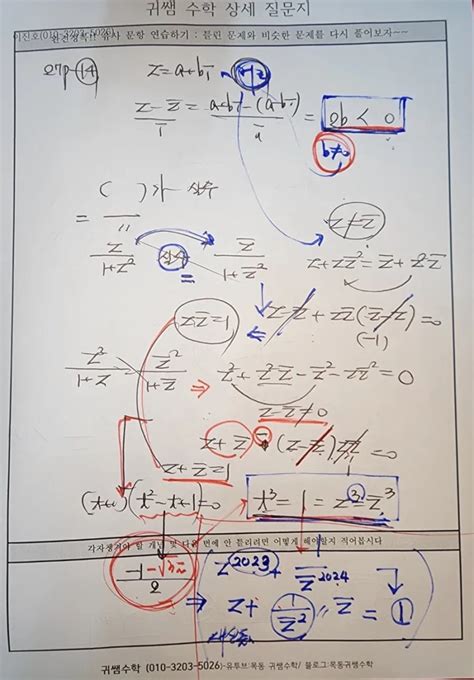 귀쌤 수학 상세 질문지
유사 문항 연습하기 : 틀린 문제와 비슷한 문제를 다시 풀어보자~~
z = a+bi
z - z̄ / i = a+bi - (a-bi) / i = 2b < 0
b≠0
( )가 실수
z / 1+z² 실수 z̄ / 1+z̄²
z≠z̄
z+zz̄² = z̄+z²z̄
zz̄=1
z-z̄ + zz̄(z̄-z) = 0
(-1)
z² / 1+z z̄² / 1+z̄ ⇒ z²+z²z̄-z̄²-zz̄² = 0
z-z̄≠0
z+z̄=1
t³ = 1 = z³ = z̄³
각자쟁겨야 할 개념 및 다음 번에 안 틀리려면 어떻게 해야할지 적어봅시다
z²⁰²³ + 1 / z̄²⁰²⁴
⇒ z + 1 / z̄² = z̄ = 1
귀쌤수학 (010-3203-5026)-유투브:목동 귀쌤수학/ 블로그:목동귀쌤수학